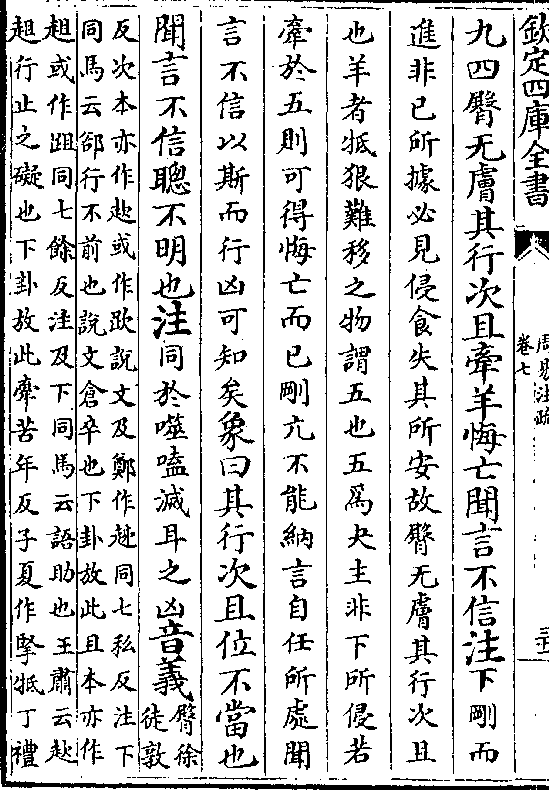 欽定四庫全書
周易注疏
卷七
九四臀无膚其行次且牽羊悔亡聞言不信注下剛而
進非己所據必見侵食失其所安故臀无膚其行次且
也羊者牴狠難移之物謂五也五為夬主非下所侵若
牽於五則可得悔亡而已剛亢不能納言自任所處聞
言不信以斯而行凶可知矣象曰其行次且位不當也
聞言不信聰不明也注同於噬嗑滅耳之凶音義臀徐
徒敦
反次本亦作趑或作跂說文及鄭作趀同七私反注下
同馬云郤行不前也說文倉卒也下卦放此且本亦作
趄或作跙同七餘反注及下同馬云語助也王肅云趑
趄行止之礙也下卦放此牽苦年反子夏作掔牴丁禮